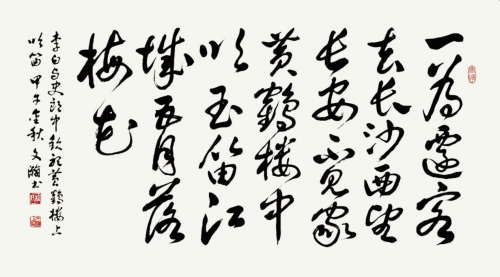 一为迁客
去长沙西望
长安不见家
黄鹤楼中
吹玉笛江
城五月落
梅花
李白与史郎中钦听黄鹤楼上
吹笛 甲午金秋 文瀚书